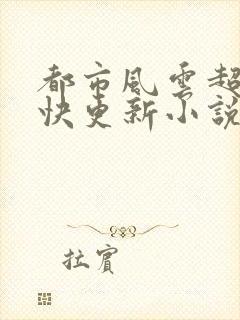 都市風雲超
快更新小說
拉賓